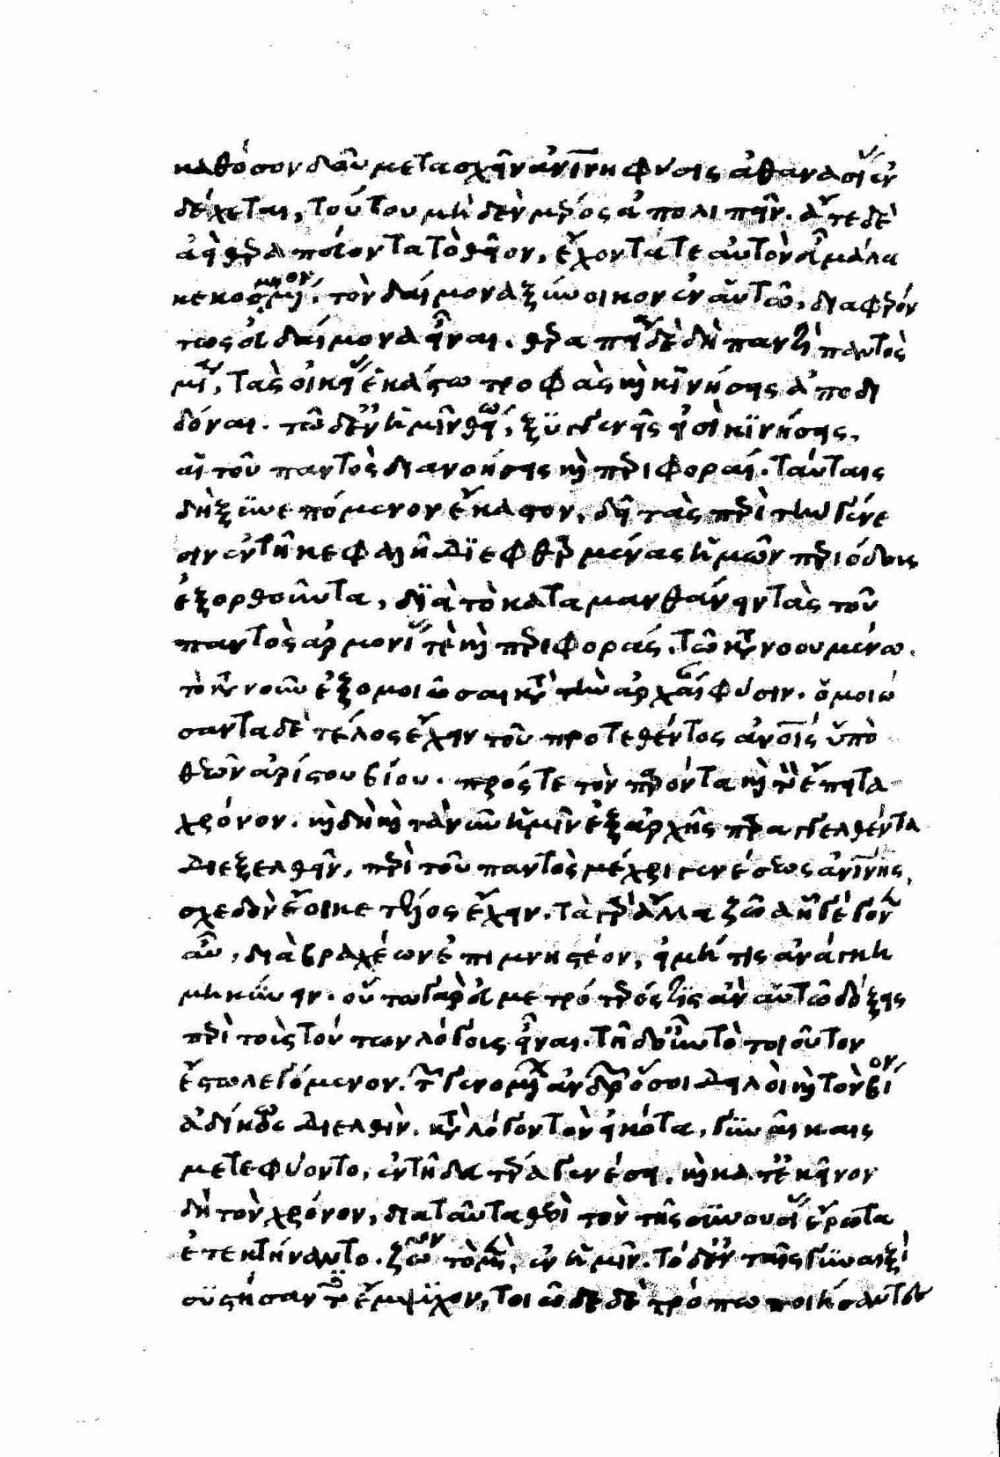 καθόσον δ' αὖ μετασχεῖν ἀνθρωπίνη φύσις ἀθανασίας ἐν
δέχεται, τούτου μηδὲν μέρος ἀπολιπεῖν. ἅτε δὲ
ἀεὶ θεραπεύοντα τὸ θεῖον, ἔχοντά τε αὐτὸν εὖ μάλα
κεκοσμημένον, τὸν δαίμονα ξύνοικον ἐν αὑτῶ, διαφερόν
τως εὐδαίμονα εἶναι. θεραπεία δὲ δὴ παντὶ παντὸς
μία, τὰς οἰκείας ἑκάστω τροφὰς καὶ κινήσεις ἀποδι
δόναι. τῶ δ' ἐν ἡμῖν θείω, ξυγγενεῖς εἰσὶ κινήσεις,
αἱ τοῦ παντὸς διανοήσεις καὶ περιφοραί. ταύταις
δὴ ξυνεπόμενον ἕκαστον, δεῖ τὰς περὶ τὴν γένε
σιν ἐν τῆ κεφαλῆ διεφθαρμένας ἡμῶν περιόδους
ἐξορθοῦντα, διὰ τὸ καταμανθάνειν τὰς τοῦ
παντὸς ἁρμονίας τὲ καὶ περιφοράς. τῶ κατανοουμένω.
τὸ κατανοοῦν ἐξομοιῶσαι κατὰ τὴν ἀρχαίαν φύσιν. ὁμοιώ
σαντα δὲ τέλος ἔχειν τοῦ προτεθέντος ἀνθρώποις ὑπὸ
θεῶν ἀρίστου βίου. πρός τε τὸν παρόντα καὶ τὸν ἔπειτα
χρόνον. καὶ δὴ καὶ τὰ νῦν ἡμῖν ἐξ ἀρχῆς παραγγελθέντα
διεξελθεῖν, περὶ τοῦ παντὸς μέχρι γενέσεως ἀνθρωπίνης,
σχεδὸν ἔοικε τέλος ἔχειν. τὰ γὰρ ἄλλα ζῶα ἧ γέγονεν
αὖ, διὰ βραχέων ἐπιμνηστέον, εἰ μή τις ἀνάγκη
μηκύνειν. οὕτω γὰρ ἐμμετρότερός τις ἂν αὑτῶ δόξειε
περὶ τοὺς τούτων λόγους εἶναι. τῆδ' οὖν τὸ τοιοῦτον
ἔστω λεγόμενον. τῶν γενομένων ἀνδρῶν ὅσοι δειλοὶ καὶ τὸν βίον
ἀδίκως διελθεῖν. κατὰ λόγον τὸν εἰκότα, γυναῖκες
μετεφύοντο, ἐν τῆ δευτέρα γενέσει. καὶ κατ' ἐκεῖνον
δὴ τὸν χρόνον, διὰ ταῦτα θεοὶ τὸν τῆς συνουσίας ἔρωτα
ἐτεκτήναντο. ζῶον τὸ μὲν, ἐν ἡμῖν. τὸ δ' ἐν ταῖς γυναιξὶ
συστήσαντες ἔμψυχον, τοιῶδε δὲ τρόπω ποιήσαντες